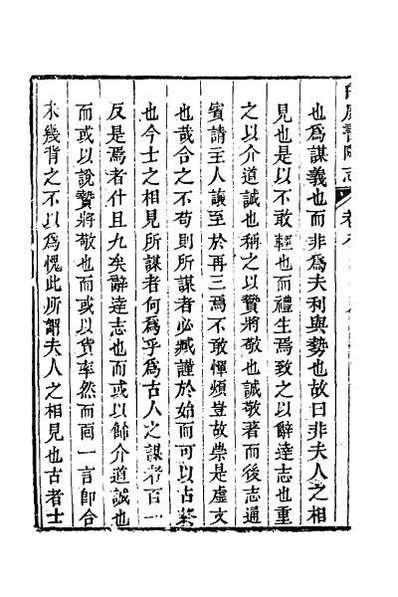 白鹿書院志
卷八
也為謀義也而非為夫利與勢也故曰非夫人之相
見也是以不敢輕也而禮生焉致之以辭達志也重
之以介道誠也稱之以贄將敬也誠敬著而後志通
賓請主人諾至於再三焉不敢憚煩豈故崇是虛文
也哉合之不苟則所謀者必臧謹於始而可以占終
也今士之相見所謀者何為乎為古人之謀者百一
反是焉者什且九矣辭達志也而或以飾介道誠也
而或以說贄將敬也而或以貨率然而囘一言即合
未幾背之不以為愧此所謂夫人之相見也古者士